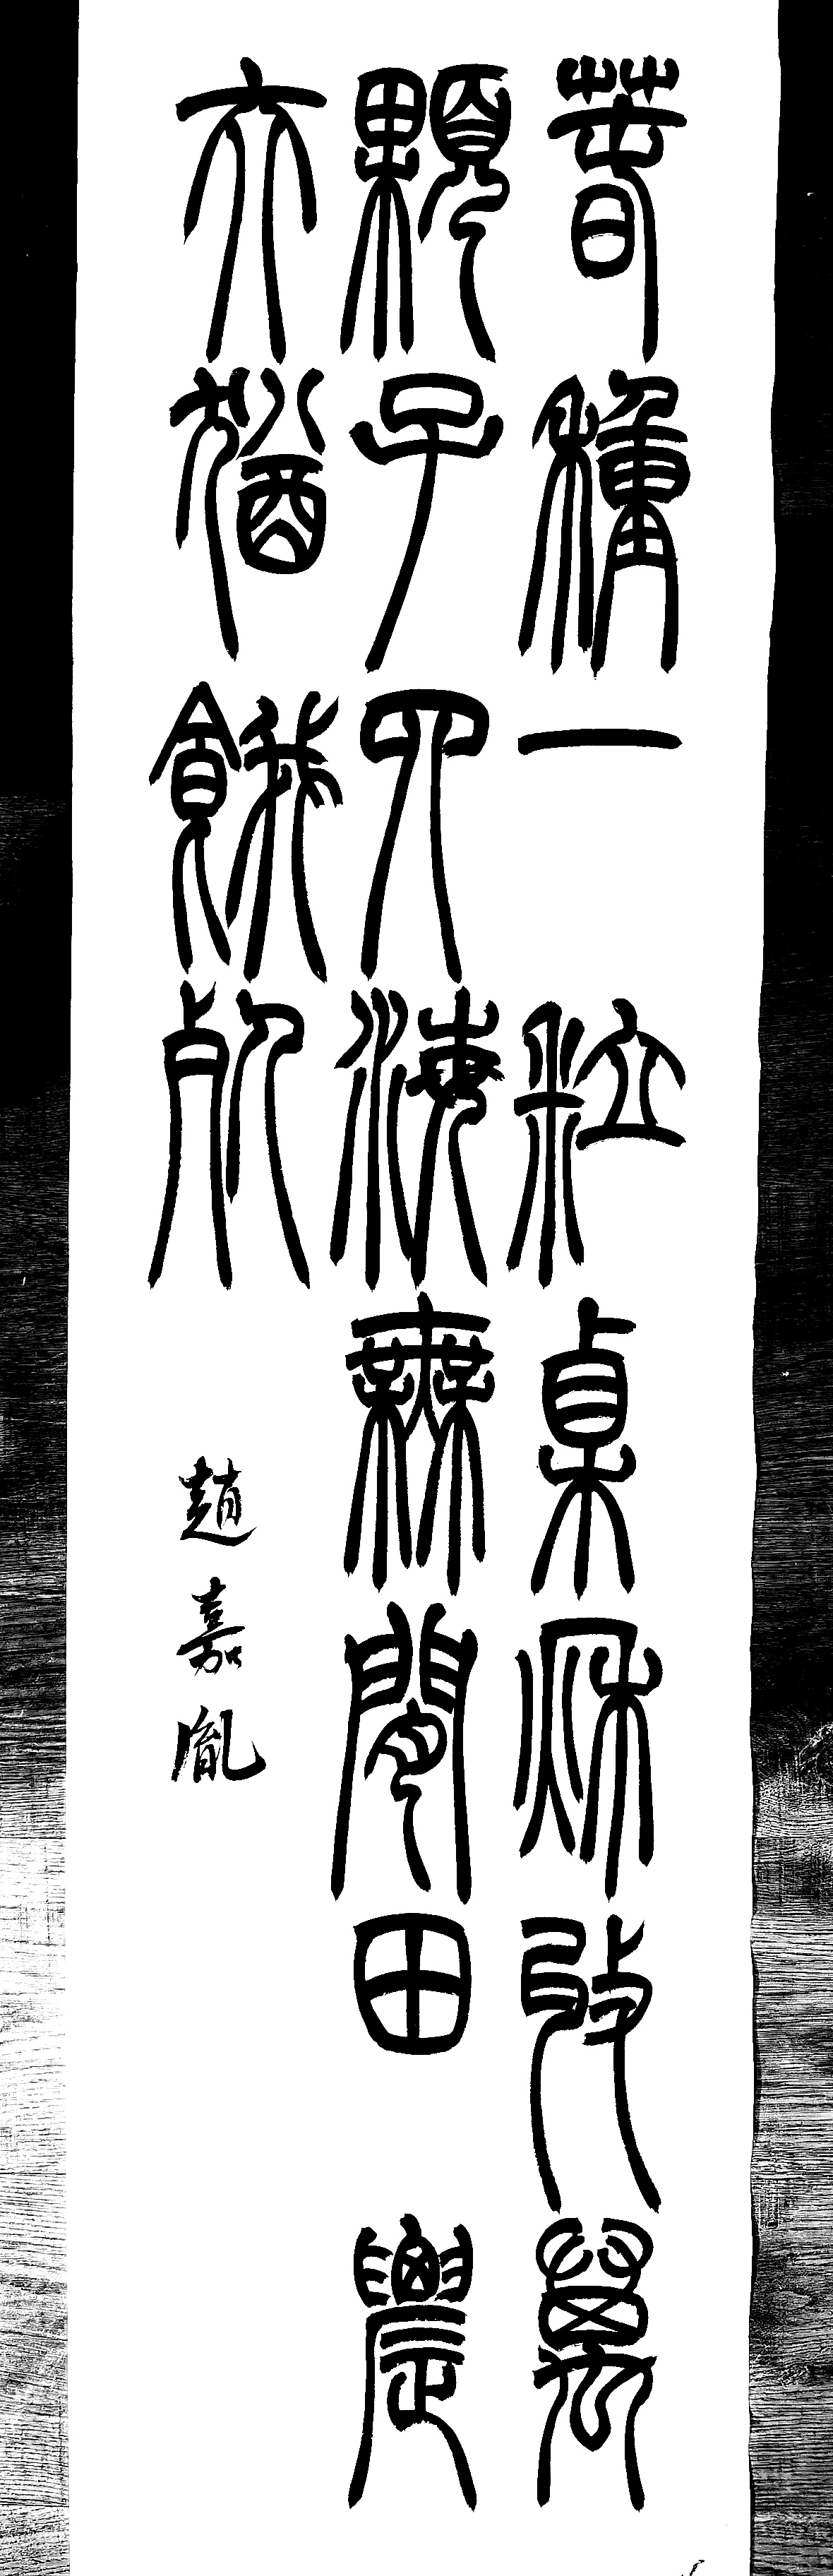 春種一粒粟秋收萬
顆子四海無閒田農
夫猶餓死
趙嘉胤